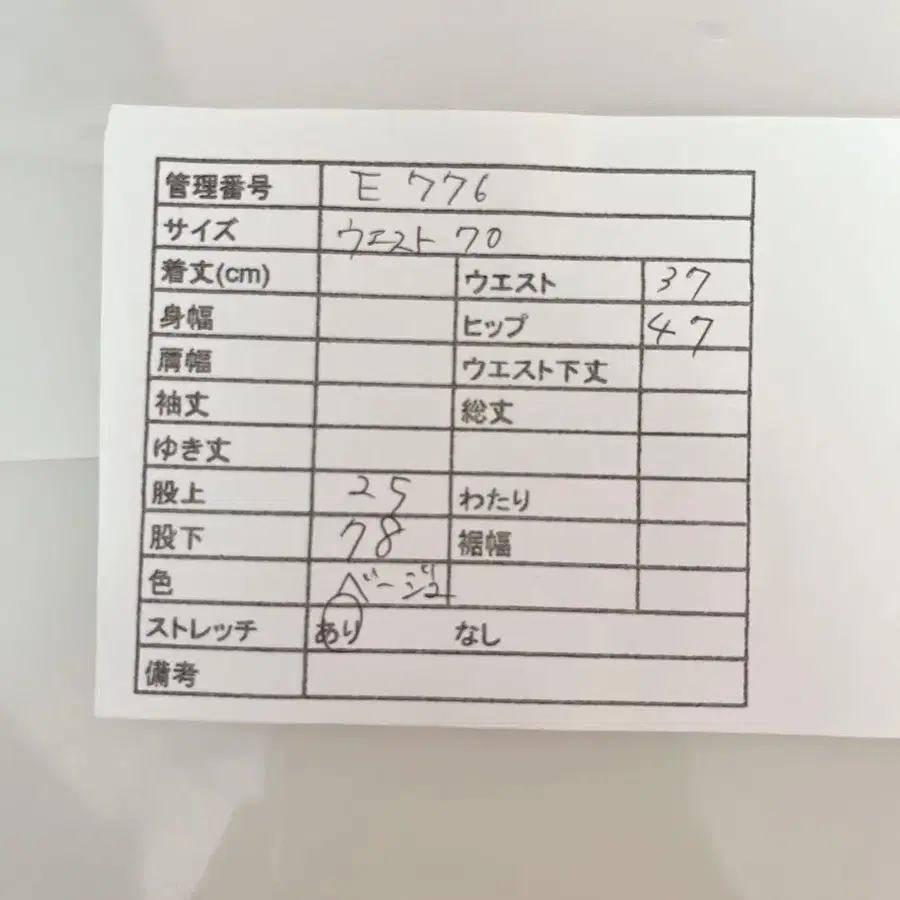 管理番号 E 776
サイズ ウエスト 70
着丈(cm) ウエスト 37
身幅 ヒップ 47
肩幅 ウエスト下丈
袖丈 総丈
ゆき丈
股上 25 わたり
股下 78 裾幅
色 ベージュ
ストレッチ あり なし
備考